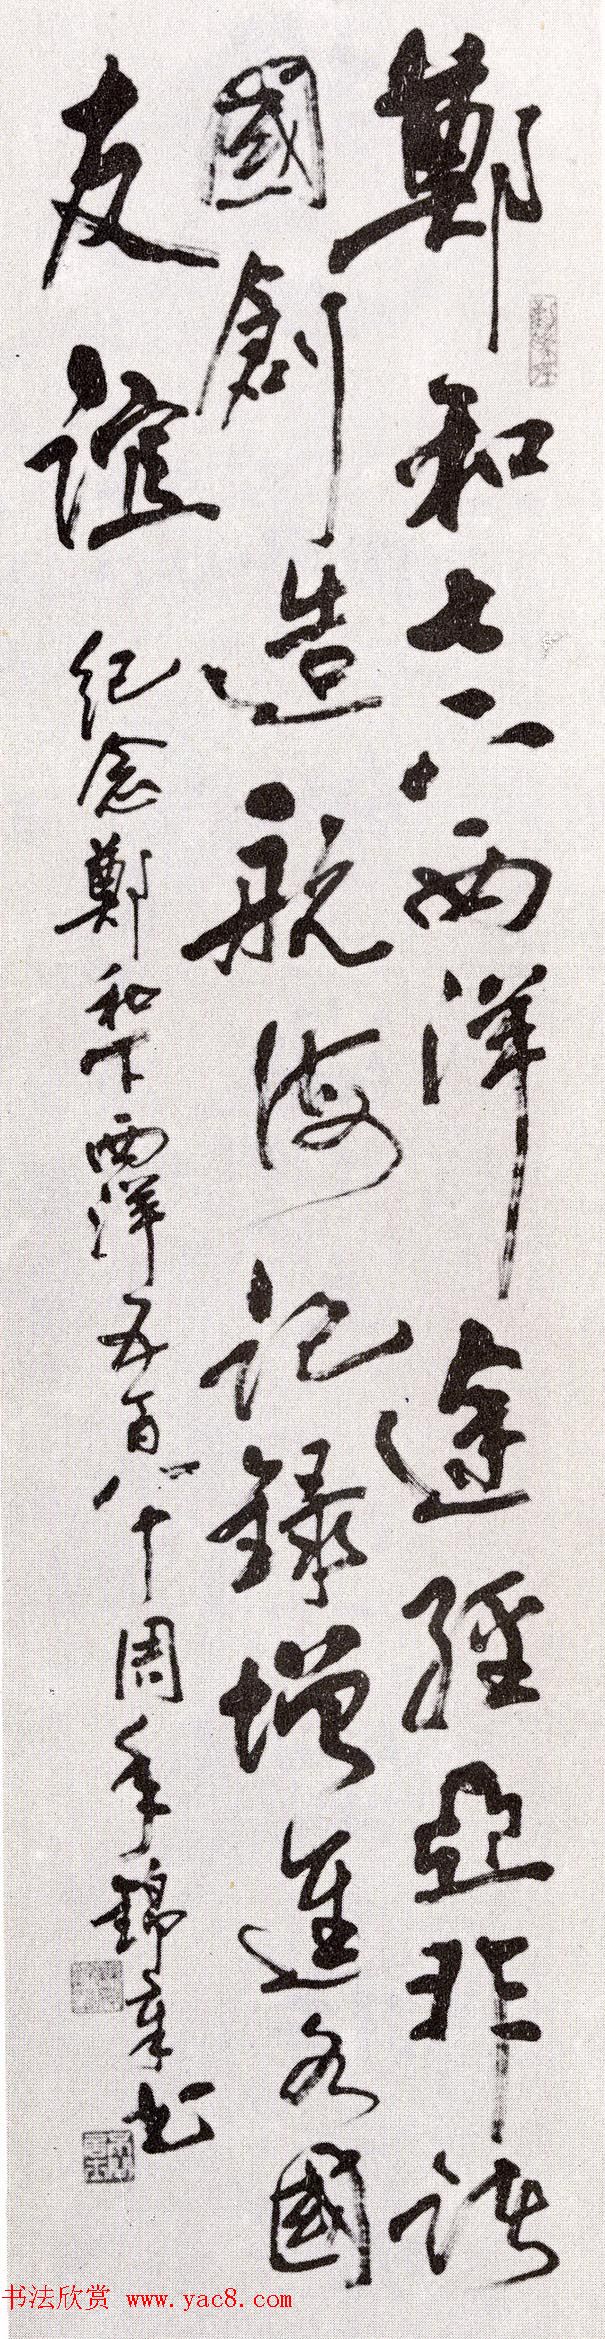 鄭和七下西洋途經亞非諸
國創造航海記錄增進各國
友誼 紀念鄭和下西洋五百八十周年錦章书
书法欣赏 www.yac8.com